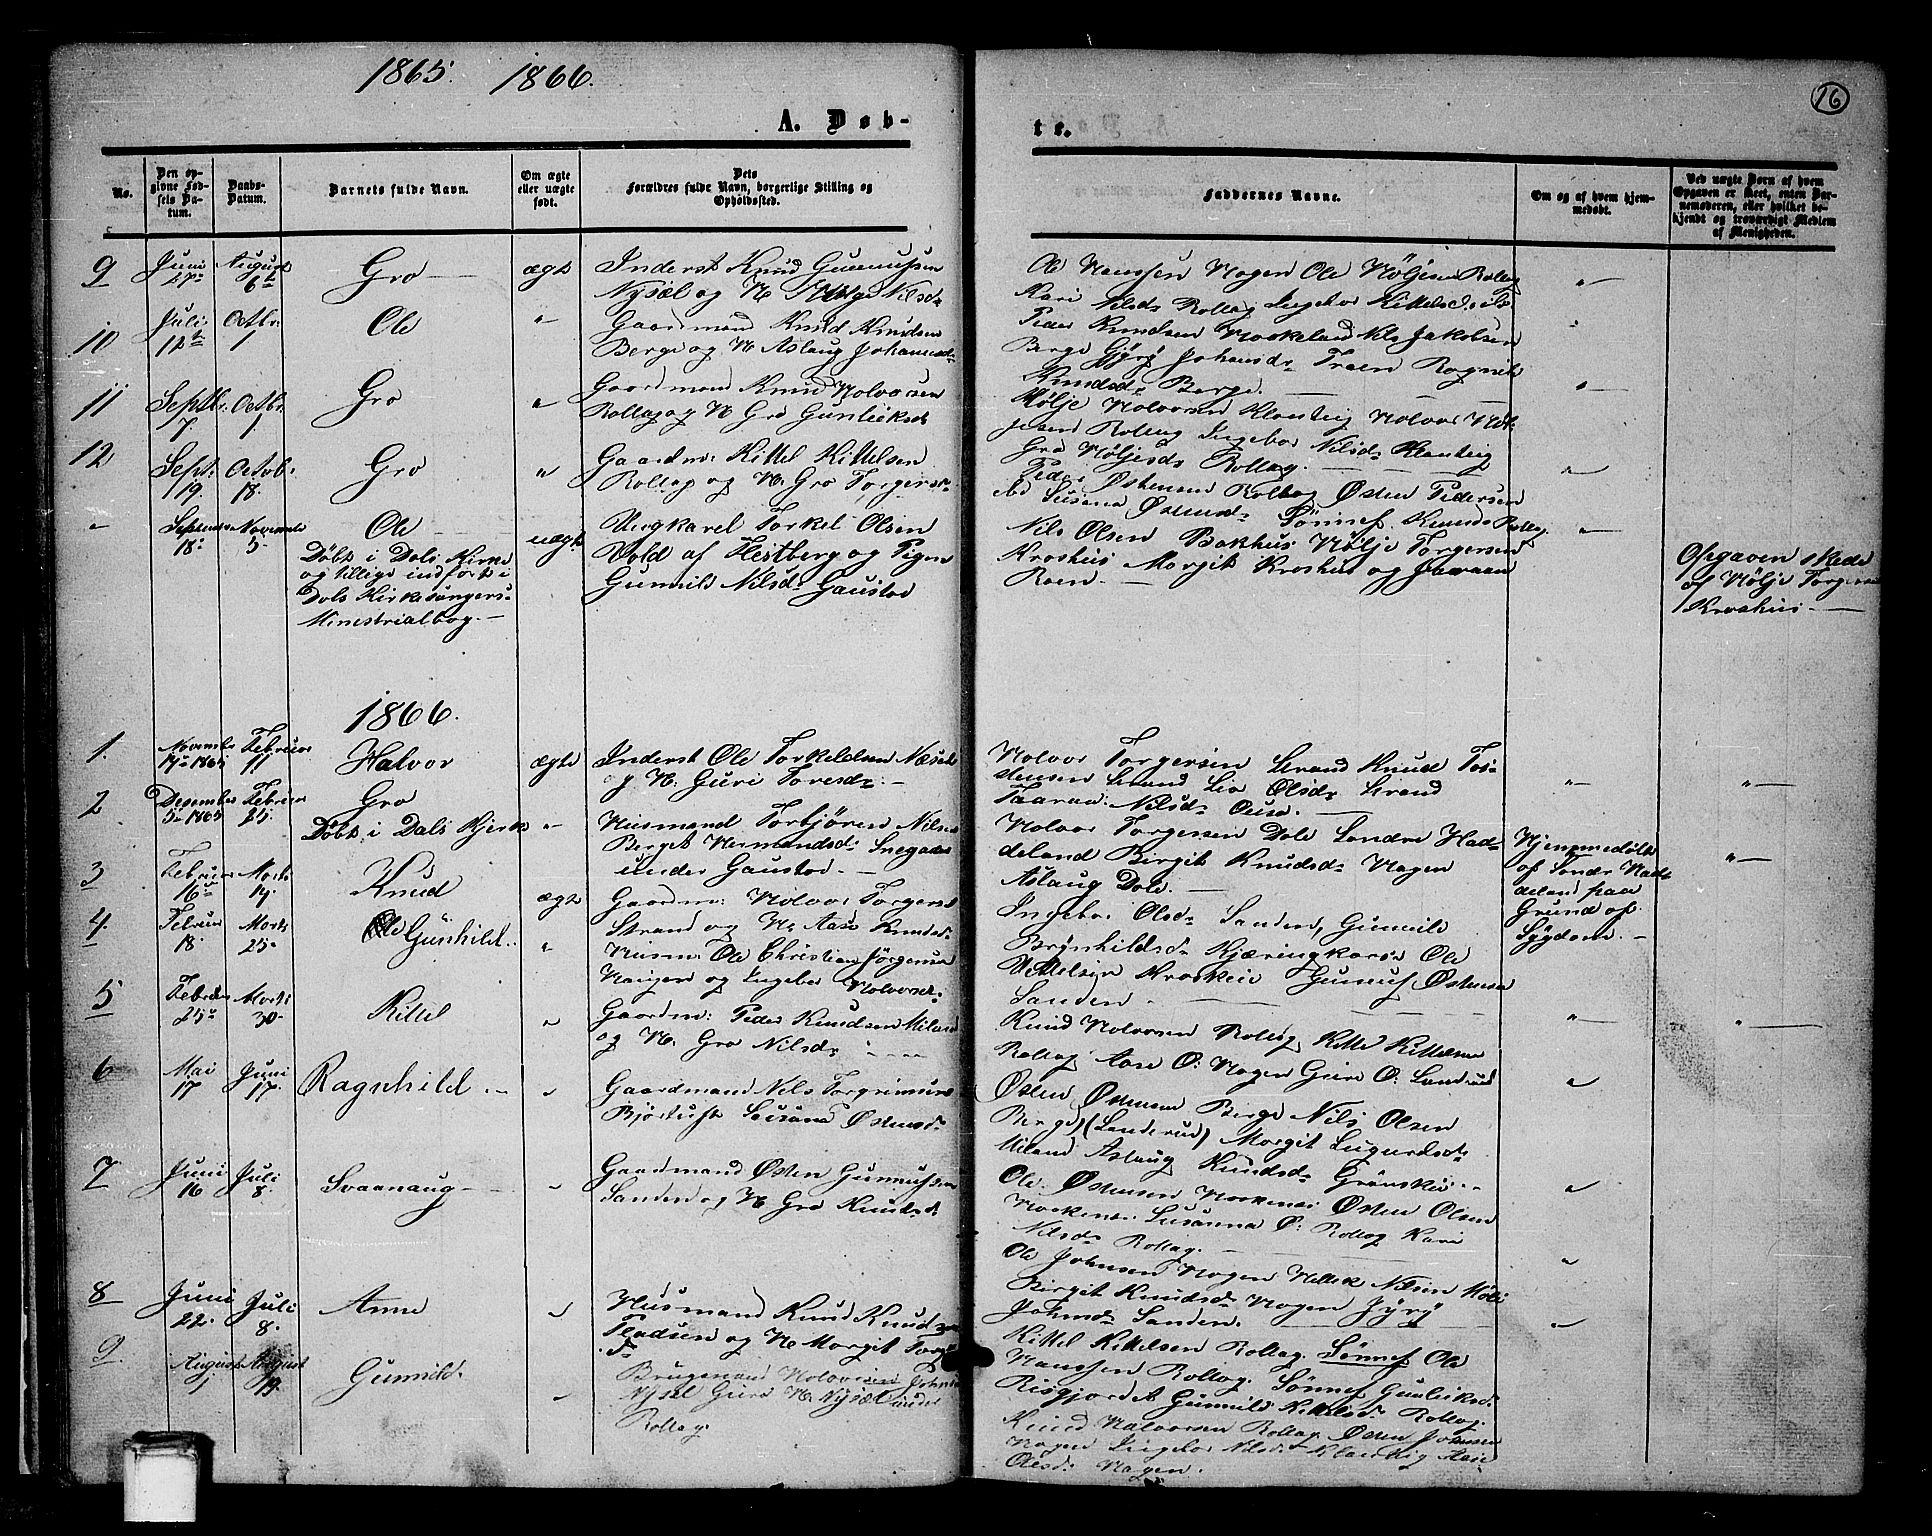 1865. 1866.
16
A. Døb-
te.
No.
Den op-
givne Fød-
sels Da-
tum.
Daabs-
Datum.
Barnets fulde Navn.
Om ægte
eller uægte
født.
Dets
Forældres fulde Navn, borgerlige Stilling og
Opholdssted.
Faddernes Navne.
Om og af hvem hjem-
medøbt.
Ved uægte Børn af hvem
Opgaven er skeet, enten Bar-
nemoderen, eller hvilket be-
kjendt og troværdigt Medlem
af Menigheden.
9
Juni
27de
August
6te
Gro
ægte
Inderst Knud Gunnufsen
Nysæl og H. Nilsd.
Ole Hanssen Hagen Ole Høljesen Rollag
Kari Nilsd. Rollag Ingebor Kittelsd.
10
Juli
12te
Octbr.
1
Ole
Gaardmand Knud Knudsen
Berge og H. Aslaug Johannesd.
Peder Knudsen Haakeland Nils Jakobsen
Berge Gjyrø Johansd. Traen Ragnil
Knudsd. Berge
11
Septbr.
7.
Octbr.
1
Gro
Gaardmand Knud Halvorsen
Rollag og H. Gro Gunleiksd.
Hølje Halvorsen Klonteig Halvor Høl-
jesen Rollag Ingebor Nilsd. Klonteig
Gro Høljesd. Rollag.
12
Sept.
19.
Octob.
18.
Gro
Gaardm. Kittel Kittelsen
Rollag og H. Gro Torgersd.
Peder Østensen Rollag Østen Pedersen
Susana Østensd. Sønnef. Knudsd. Rollag
Septembr
18.
Novembr
5.
Ole
Døbt i Dals Kirke
og tillige indført i
Dals Kirkesangers
Ministrialbog.
uægte
Ungkarel Torkel Olsen
Vold af Hestberg og Pigen
Gunnild Nilsd. Gaustad
Nils Olsen Bakhus Hølje Torgersen
Kroshus Margit Kroshus og
Roen
Opgaven skede
af Hølje Torgersen
Kroshus.
1866.
1.
November
14. 1865
Februar
11
Halvor
ægte
Inderst Ole Torkeldsen Næset
og H. Guri Toresd.
Halvor Torgersen Strand Knud To-
stensen Strand Liv Olsd. Strand
Taaran Nilsd.
2
Desember
5. 1865
Februar
25.
Gro
Døbt i Dals Kjerke
Husmand Torbjøren Nilsen
Berget Hermandsd.
under Gaustad.
Halvor Torgersen Dale Søndre Had-
deland Birgit Knudsd. Hagen
Aslaug Dale.
Hjemmedøbt
af Søndr Had-
deland paa
Grund af
Sygdom.
3
Februar
16.
Marts
19.
Knud
ægte
Gaardm. Halvor Torgersen
Strand og H. Aase Knudsd.
4.
Februar
18.
Marts
25.
Gunhild.
Husm. Ole Christian Jørgensen
Haugen og Ingebor Halvorsd.
Ingebor Olsd. Sanden, Gunnild
Brynhildsd. Kjæringkaas Ole
Kittelsen Gunnuf Østensen
Sanden
5
Februar
25.
Marts
30.
Kittel
Gaardm. Peder Knudsen Miland
og H. Gro Nilsd.
Knud Halvorsen Rollag Kittel Kittelsen
Rollag Aase O. Hagen Guro O. Landerud
6
Mai
17
Juni
17.
Ragnhild
Gaardmand Nils Torgrimsen
Bjørtuft Susana Østensd.
Østen Østensen Berge Nils Olsen
Berge (Landerud) Margit Sugurdsd.
Miland Aslaug Knudsd.
7
Juni
16
Juli
8.
Svaanaug
Gaardmand Østen Gunnufsen
Sanden og H. Gro Knudsd.
Ole Østensen Haakenes Østen Olsen
Haakenes. Susanna Ø. Rollag Kari
Nilsd. Rollag.
8
Juni
22.
Juli
8.
Anne
Husmand Knud Knudsen
Fladsen og H. Margit Torg-
d.
Ole Johnsen Hagen
Birgit Knudsd. Hagen Jyrø
Johnsd. Sanden.
9.
August
1
August
19.
Gunnild.
Brugsmand Halvor Johnsen
Nysel Guro H. Nysæl under
Rollag.
Kittel Kittelsen Rollag. Sønnef Ole
Hanssen Rollag. Sønnef Gunleiksd.
Risgjordet Gunnild Kittelsd. Rollag.
Knud Halvorsen Rollag Østen Johnsen
Hagen Ingebor Nilsd. Klonteig Aase
Olsd. Hagen.